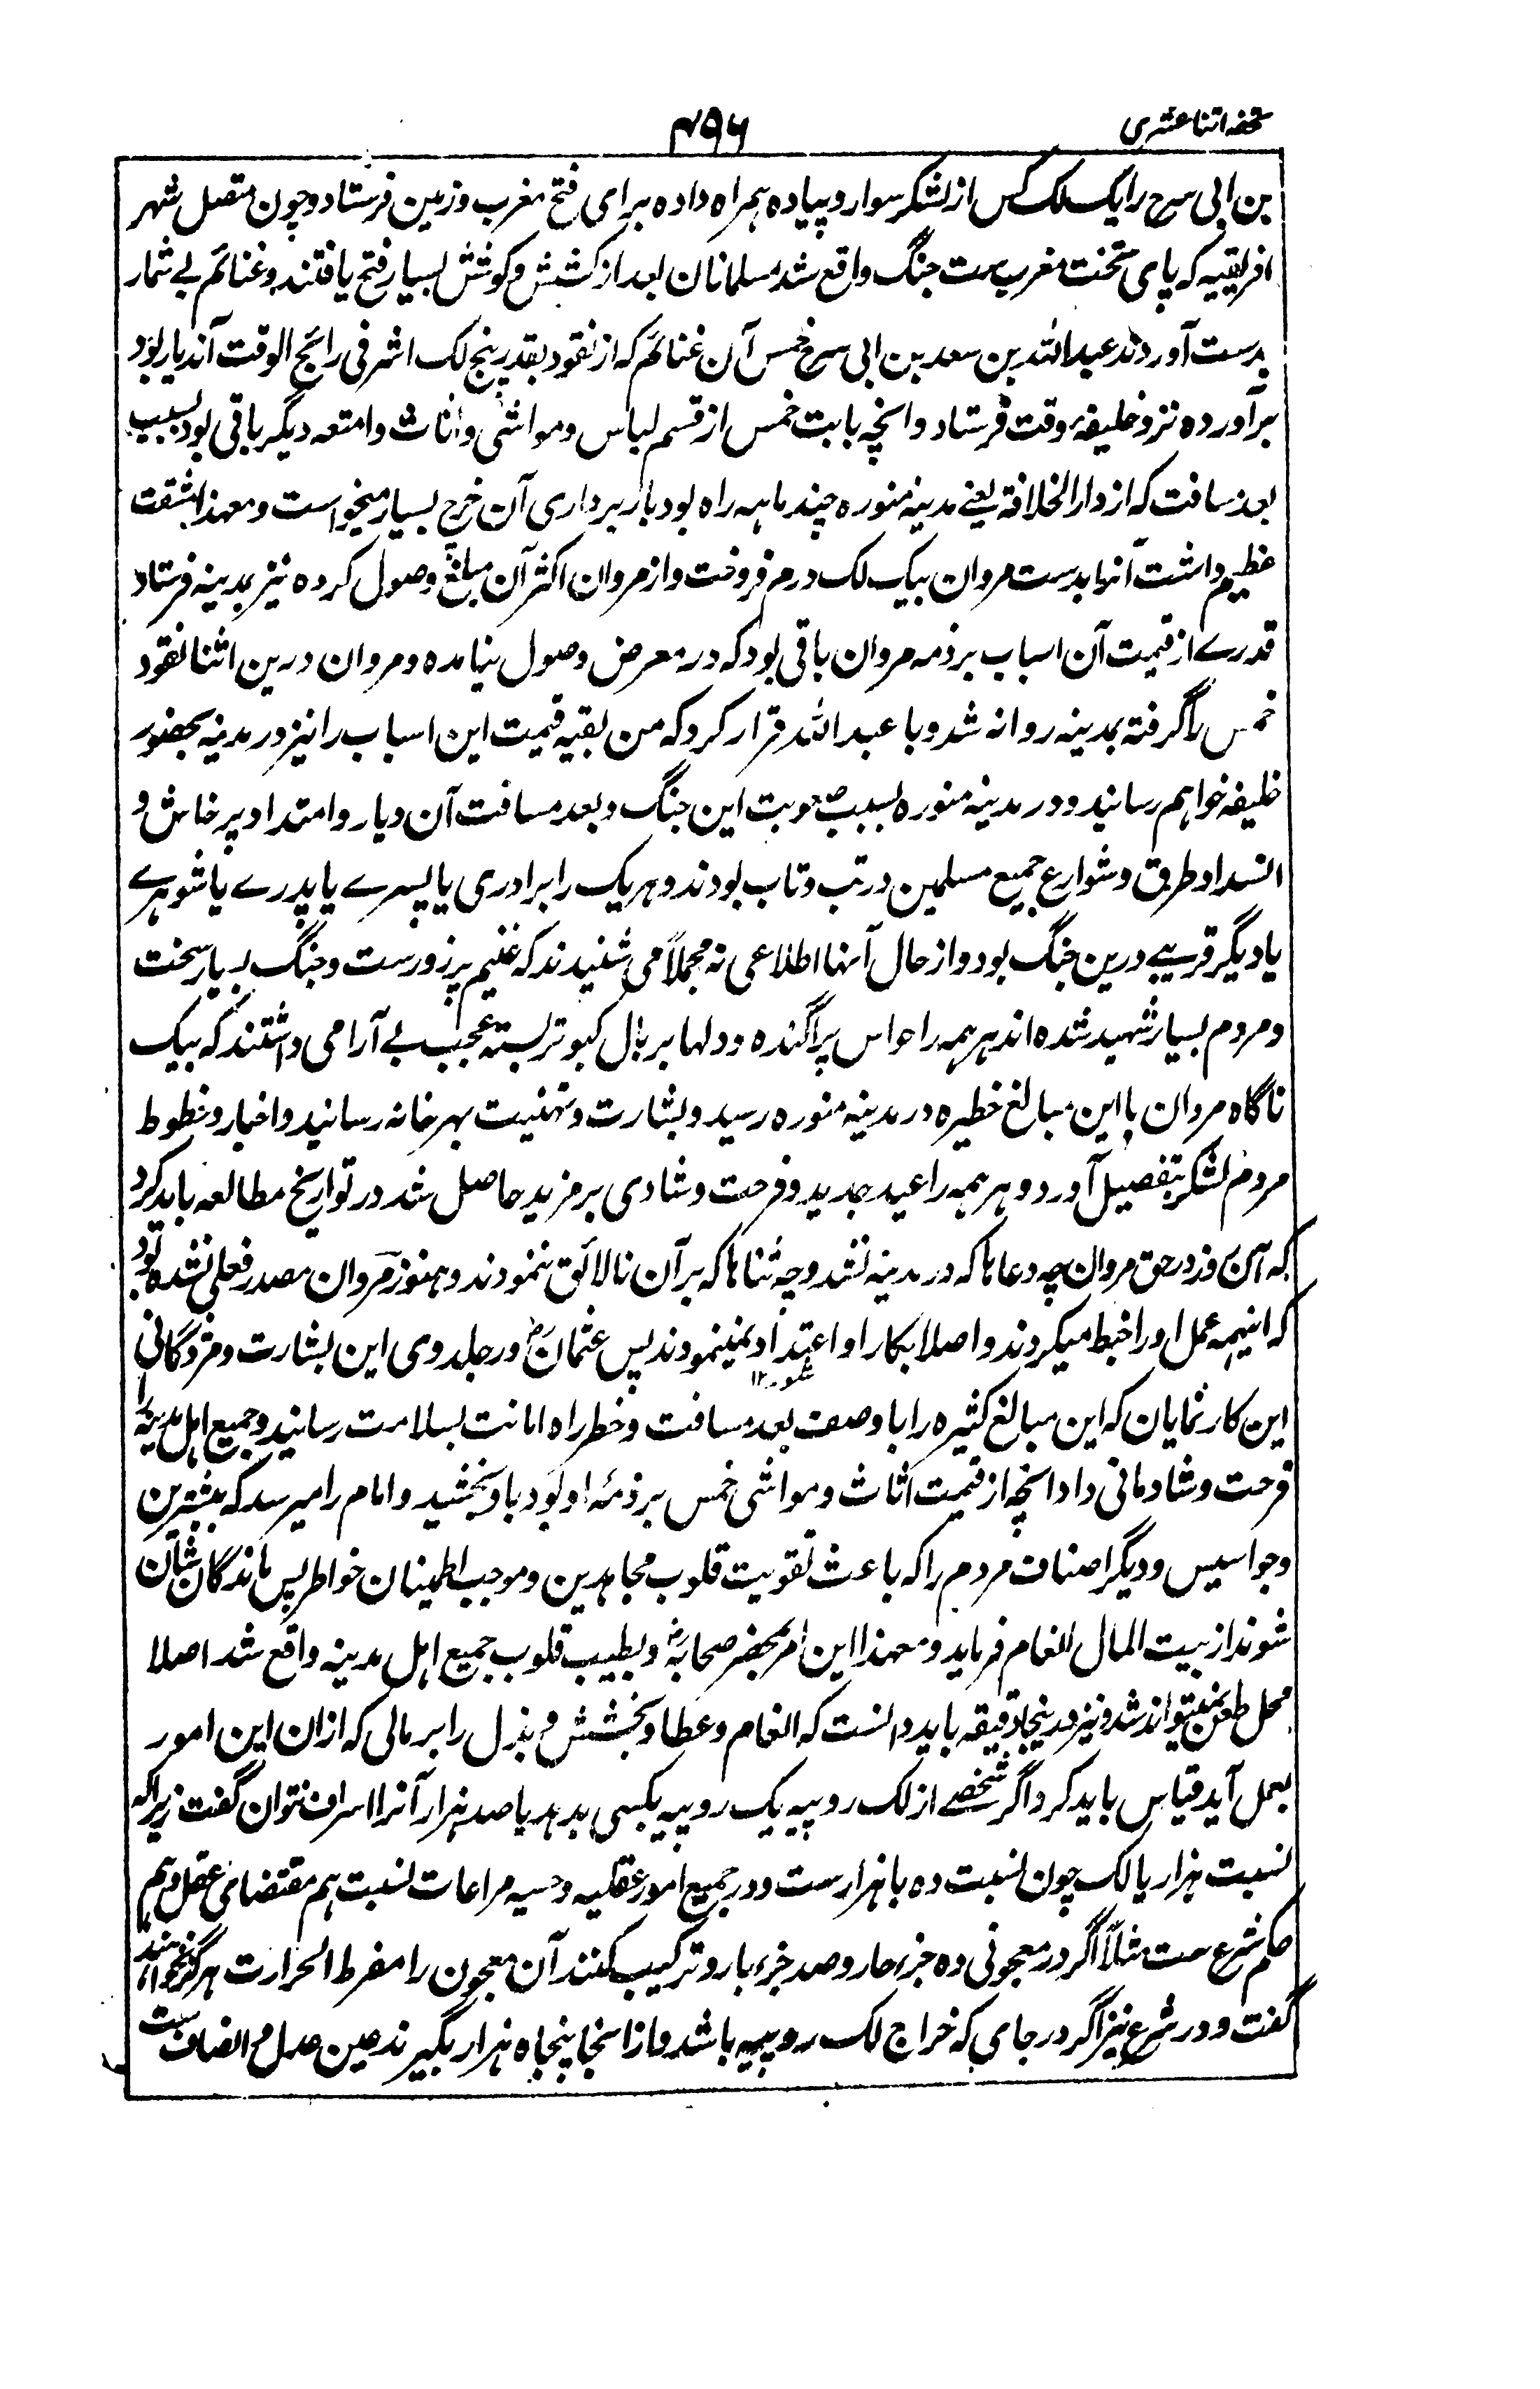 تحفه اثنا عشری
۴۹۶
بن ابی سرح را یک لک کس از لشکر سوار و پیاده همراه داده برای فتح مغرب زمین فرستاد و چون متصل شهر
افریقیه که پای تخت مغرب ست جنگ واقع شد مسلمانان بعد از کشش و کوشش بسیار فتح یافتند و غنائم بی شمار
بدست آوردند عبدالله بن سعد بن ابی سرح خمس آن غنائم که از نقود بقدر پنج لک اشرفی رائج الوقت آندیار بود
برآورده نزد خلیفهٔ وقت فرستاد و انچه بابت خمس از قسم لباس و مواشی و اثاث و امتعه دیگر باقی بود بسبب
بعد مسافت که از دار الخلافة یعنے مدینه منوره چند ماهه راه بود باربرداری آن خرج بسیار میخواست و معهذا مشقت
عظیم داشت آنرا بدست مروان بیک لک درم فروخت و از مروان اکثر آن مبلغ وصول کرده نیز بمدینه فرستاد
قدرے از قیمت آن اسباب بر ذمه مروان باقی بود که در معرض وصول نیامده و مروان درین اثنا نقود
خمس را گرفته بمدینه روانه شد و با عبد الله قرار کرد که من بقیه قیمت این اسباب را نیز در مدینه بحضور
خلیفه خواهم رسانید و در مدینه منوره بسبب صعوبت این جنگ و بعد مسافت آن دیار و امتداد پرخاش و
انسداد طرق و شوارع جمیع مسلمین در تب و تاب بودند و هر یک را برادری یا پسرے یا پدرے یا شوهرے
یا دیگر قریبے درین جنگ بود و از حال آنها اطلاعی نه مجملاً می شنیدند که غنیم پر زورست و جنگ بسیار سخت
و مردم بسیار شهید شده اند هر همه را حواس پراگنده و دلها بر بال کبوتر بسته عجب بے آرامی داشتند که بیک
ناگاه مروان با این مبالغ خطیره در مدینه منوره رسید و بشارت و تهنیت بهر خانه رسانید و اخبار و خطوط
مردم لشکر بتفصیل آورد و هر همه را عید جدید و فرحت و شادی بر مزید حاصل شد در تواریخ مطالعه باید کرد
که آن روز در حق مروان چه دعاها که در مدینه نشد و چه ثناها که بر آن نالائق ننمودند و هنوز مروان مصدر فعلی نشده بود
که اینهمه عمل او را خبط میکردند و اصلا بکار او اعتداد نمینمودند پس عثمان رض در جلدوی این بشارت و مژدگانی
این کار نمایان که این مبالغ کثیره را با وصف بعد مسافت و خطر راه امانت بسلامت رسانید و جمیع اهل مدینه را
فرحت و شادمانی داد انچه از قیمت اثاث و مواشی خمس بر ذمهٔ او بود باو بخشید و امام را میرسد که مبشرین
و جواسیس و دیگر اصناف مردم را که باعث تقویت قلوب مجاهدین و موجب اطمینان خواطر پس ماندگان شان
شوند از بیت المال انعام فرماید و معهذا این امر بمحضر صحابه رض و بطیب قلوب جمیع اهل مدینه واقع شد اصلا
محل طعن نمیتواند شد و نیز درینجا دقیقه باید دانست که انعام و عطا و بخشش و بذل را بر مالی که ازان این امور
بعمل آید قیاس باید کرد اگر شخصے از لک روپیه یک روپیه بکسی بدهد یا صد هزار آنرا اسراف نتوان گفت زیراکه
نسبت هزار با لک چون نسبت ده با هزارست و در جمیع امور عقلیه و حسیه مراعات نسبت هم مقتضای عقل و هم
حکم شرع ست مثلاً اگر در معجونی ده جزء حار و صد جزء بارد ترکیب کنند آن معجون را مفرط الحرارت هرگز نخواهند
گفت و در شرع نیز اگر در جای که خراج لک روپیه باشد و ازانجا پنجاه هزار بگیرند عین عدل و انصاف ست